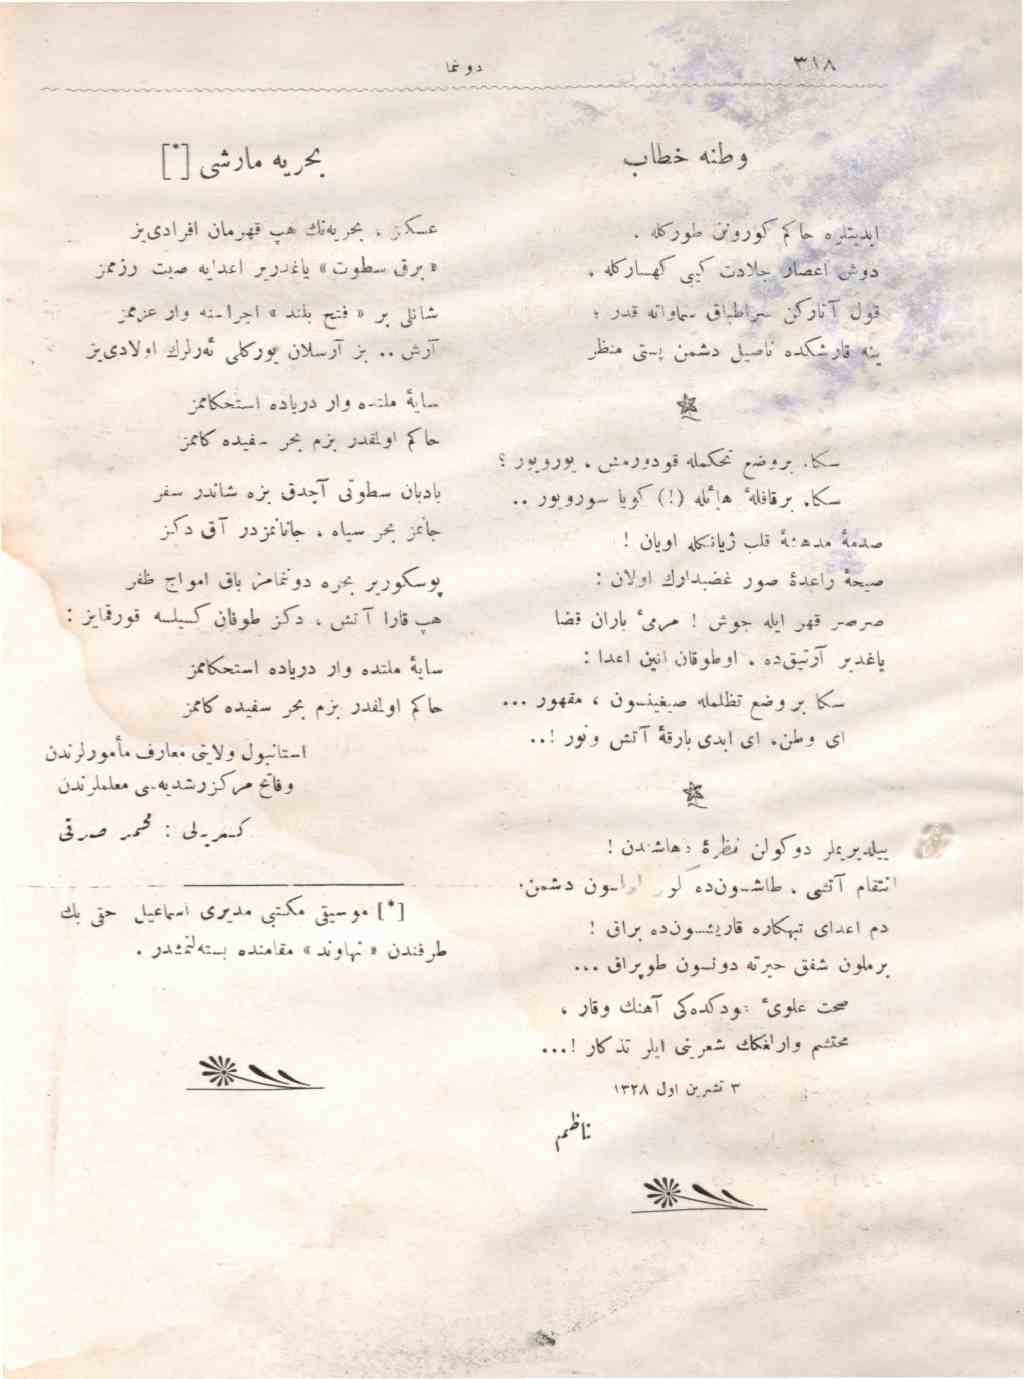 ٣١٨
دوننما
وطنه خطاب
ابديتلره حاكم كورونن طورڭله ،
دوش اعصار جلادت كبى كهسارڭله ،
قول آتاركن سراطباق سماواته قدر ؛
ينه قارشڭده ناصيل دشمن پستى منظر
سكا، بروضع تحكمله قودورمش ، يورويور ؟
سكا، برقافلهٔ هائله (!) كويا سورويور ..
صدمهٔ مدهشهٔ قلب ژيانڭله اويان !
صيحهٔ راعدهٔ صور غضبدارك اولان :
صرصر قهر ايله جوش ! مرمىٔ باران قضا
ياغدير آرتيق‌ده ، اوطوقان انين اعدا :
سكا بروضع تظلمله صيغينسون ، مقهور ...
اى وطن، اى ابدى بارقهٔ آتش ونور !..
ييلديريملر دوكولن نظرهٔ دهاشندن !
انتقام آتشى ، طاشسون‌ده اولسون دشمن؛
دم اعداى تبهكاره قاريشسون‌ده براق !
برملون شفق حيرته دونسون طوپراق ...
صحت علوىٔ كى آهنك وقار ،
محتشم وارلغڭك شعرينى ايلر تذكار !...
٣ تشرين اول ١٣٢٨
ناظم
بحريه مارشى [*]
عسكرز ، بحريه‌نك هپ قهرمان افرادى‌يز
« برق سطوت » ياغديرير اعدايه صيت رزممز
شانلى بر « فتح بلند » اجراسنه وار عزممز
آرش .. بز آرسلان يوركلى ئه‌رلرك اولادى‌يز
سايهٔ ملتده وار درياده استحكاممز
حاكم اولمقدر بزم بحر سفيده كاممز
بادبان سطوتى آچدق بزه شاندر سفر
جانمز بحر سياه ، جانانمزدر آق دكز
پوسكورير بحره دوننمامز باق امواج ظفر
هپ قارا آتش ، دكز طوفان كسيلسه قورقمايز :
سايهٔ ملتده وار درياده استحكاممز
حاكم اولمقدر بزم بحر سفيده كاممز
استانبول ولايتى معارف مأمورلرندن
وفاتح مركز رشديه‌سى معلملرندن
كسريه‌لى : محمد صدقى
[*] موسيقى مكتبى مديرى اسماعيل حقى بك
طرفندن « نهاوند » مقامنده بسته‌لنمشدر .